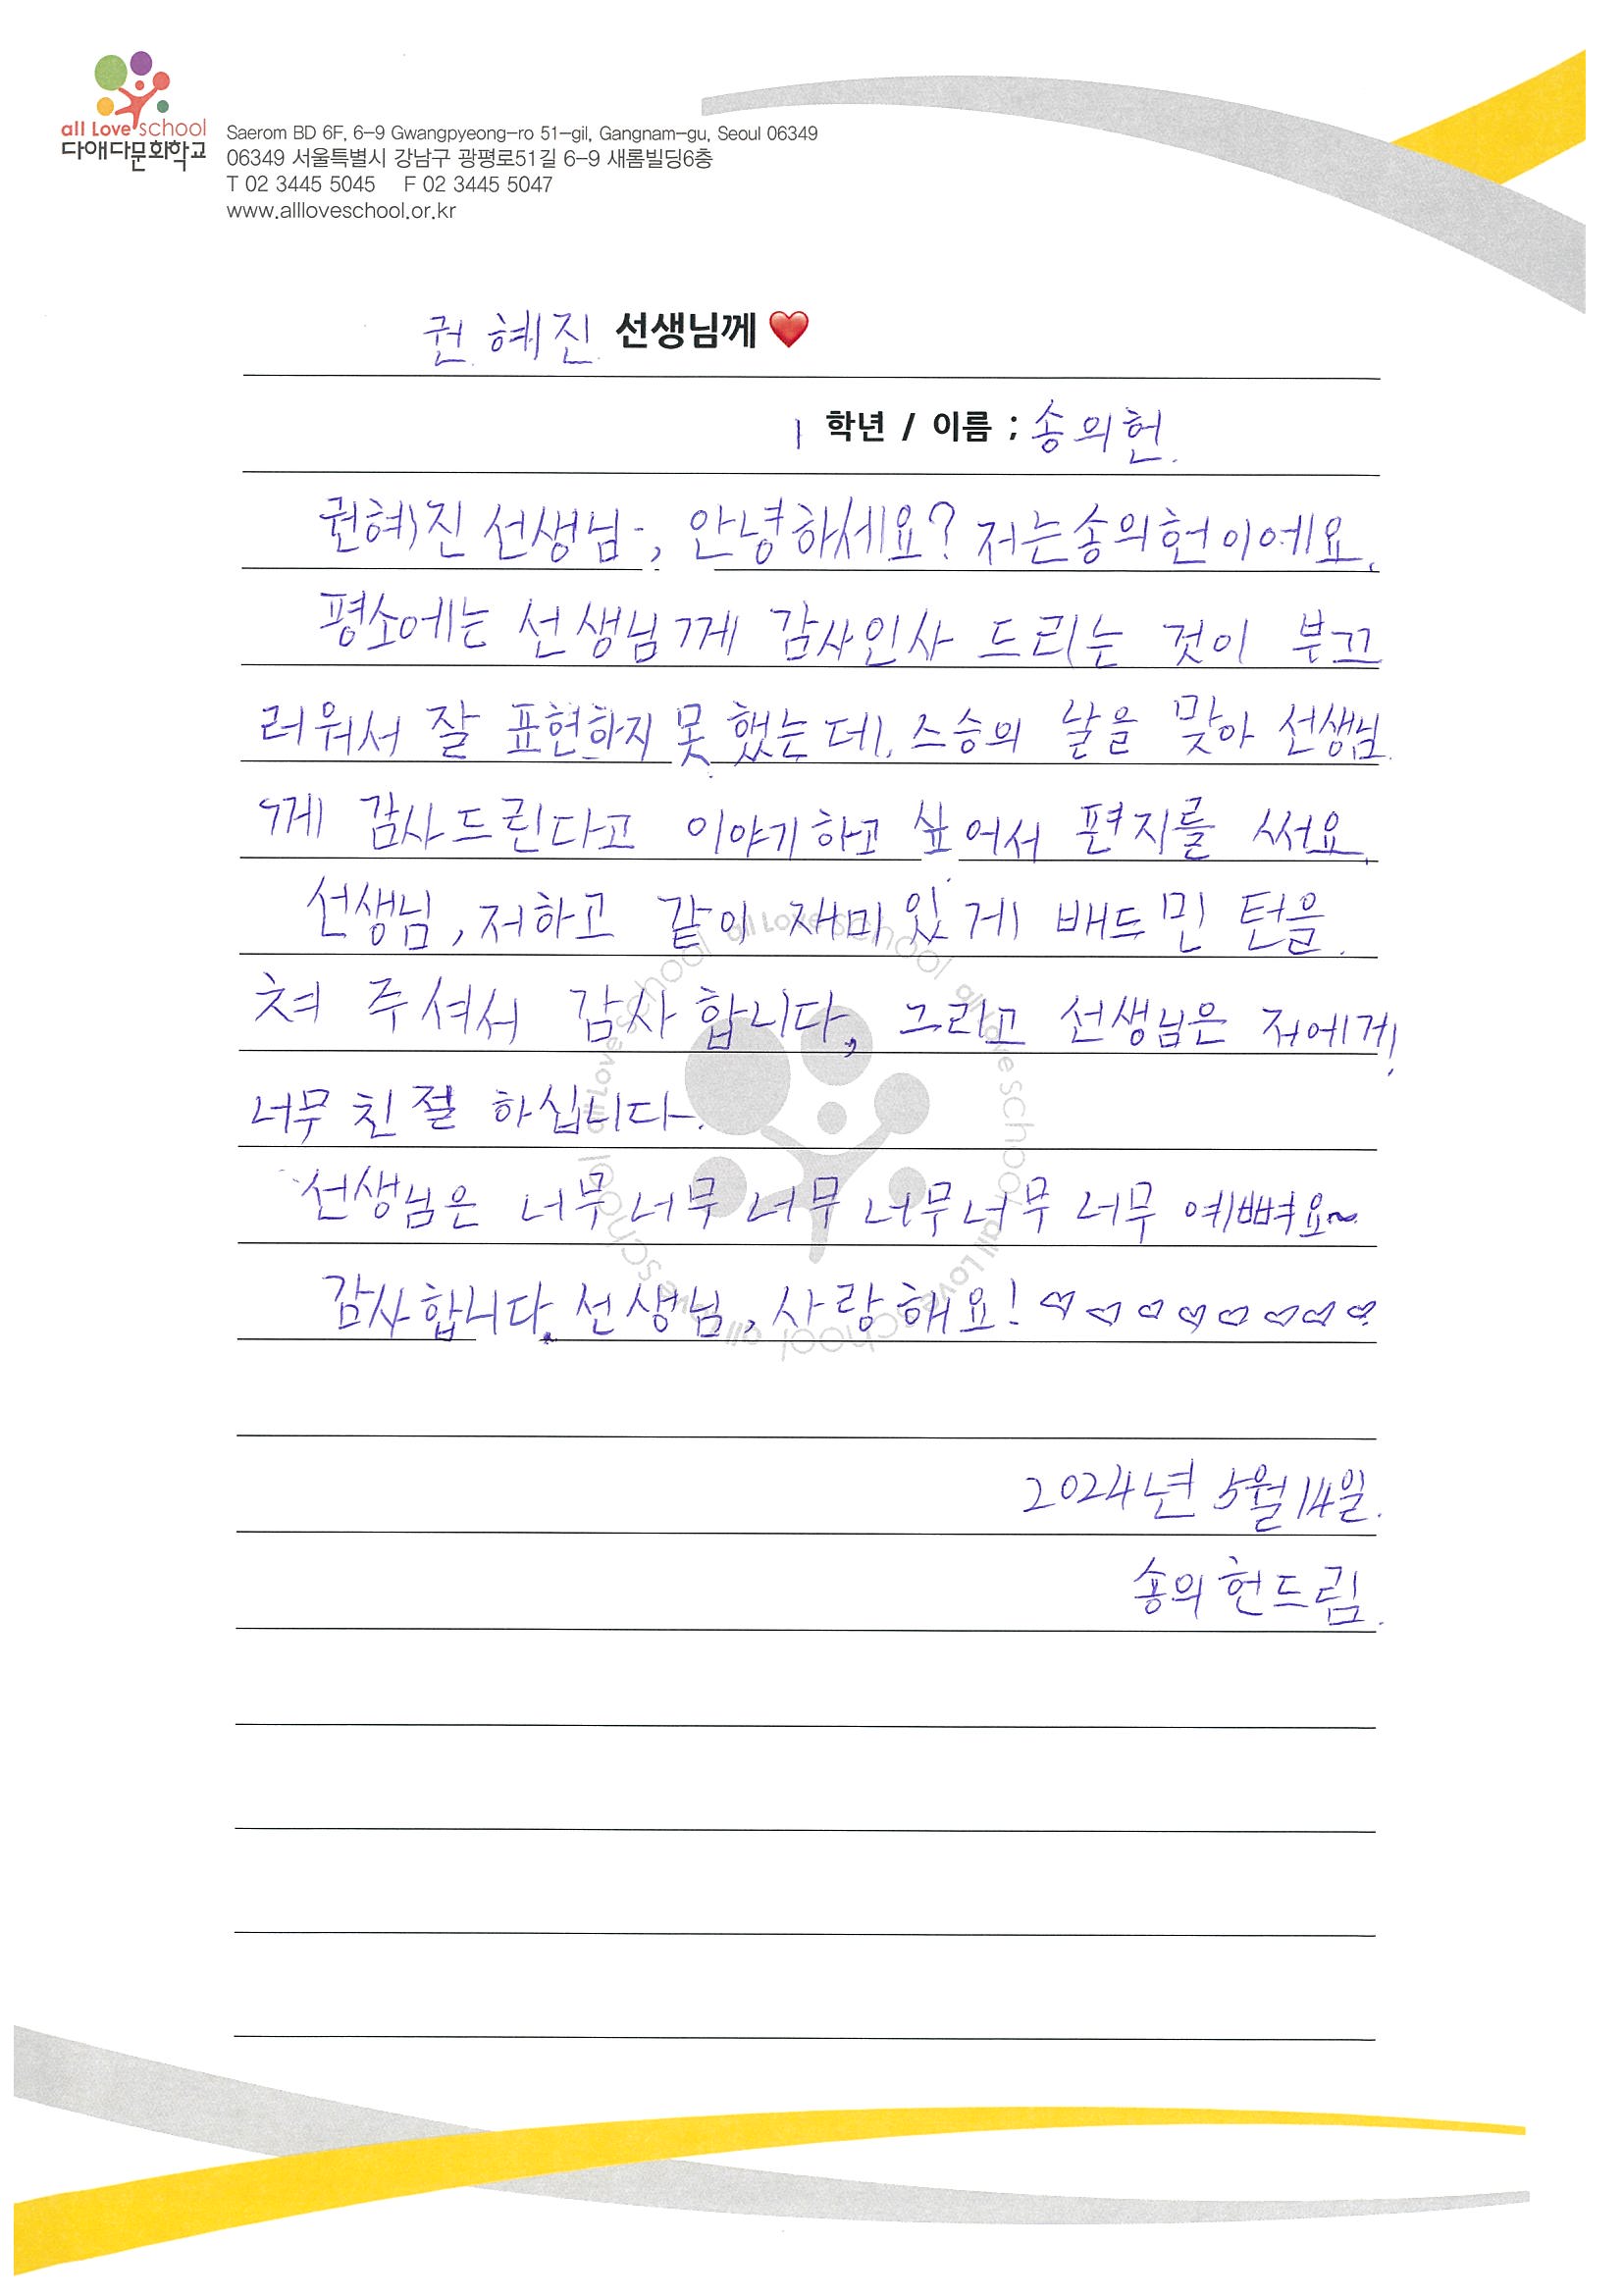 all Love school
다애다문화학교
Saerom BD 6F, 6-9 Gwangpyeong-ro 51-gil, Gangnam-gu, Seoul 06349
06349 서울특별시 강남구 광평로51길 6-9 새롬빌딩6층
T 02 3445 5045 F 02 3445 5047
www.allloveschool.or.kr
권혜진 선생님께 ❤
1 학년 / 이름 ; 송의헌.
권혜진 선생님, 안녕하세요? 저는송의헌이에요.
평소에는 선생님께 감사인사 드리는 것이 부끄
러워서 잘 표현하지 못했는데, 스승의 날을 맞아 선생님
께 감사드린다고 이야기하고 싶어서 편지를 써요.
선생님, 저하고 같이 재미있게 배드민턴을
쳐 주셔서 감사합니다, 그리고 선생님은 저에게
너무 친절 하십니다.
선생님은 너무너무 너무 너무너무 너무 예뻐요~
감사합니다. 선생님, 사랑해요! ♡♡♡♡♡♡♡♡
2024년 5월 14일.
송의헌드림.
all Love school all Love school all Love school all Love school all Love school